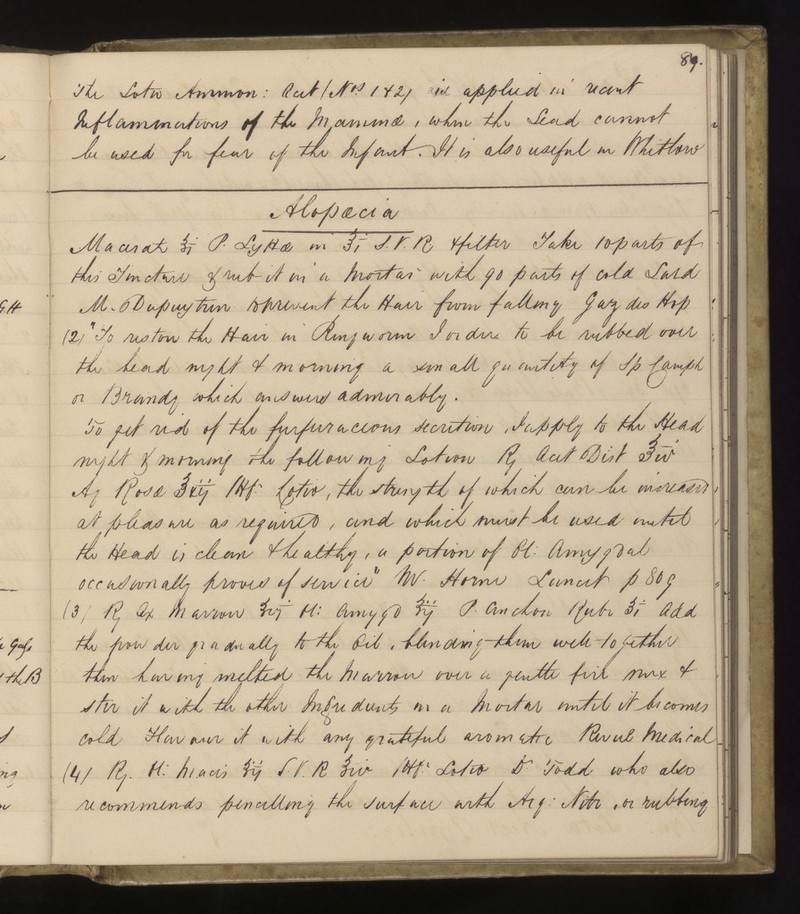 89.
The Lotio Ammon: Acet (Nos 1 & 2) is applied in recent
Inflammations of the Mammæ, when the Lead cannot
be used for fear of the Infant. It is also useful in Whitlow
Alopæcia
Macerate ʒi P. Lyttæ in ℥i S.V.R & filter Take 10 parts of
this Tincture & rub it in a Mortar with 90 parts of cold Lard
M. Dupuytren to prevent the Hair from falling Gaz des Hop
(2) "To restore the Hair in Ringworm I order to be rubbed over
the head night & morning a small quantity of Sp Camph
or Brandy which answers admirably.
To get rid of the furfuraceous secretion, I apply to the Head
night & morning the following Lotion ℞ Acet Dist ℥iv
Aq Rosæ Ft Lotio, the strength of which can be increased
at pleasure as required, and which must be used until
the Head is clean & healthy, a portion of Ol: Amygdal
occasionally proves of service" Mr. Horne Lancet p 809
(3) ℞ Ox Marrow Ol: Amygd P. Anchon Rubr ʒi Add
the powder gradually to the Oil, blending them well together
then having melted the Marrow over a gentle fire mix &
stir it with the other Ingredients in a Mortar until it becomes
cold Flavour it with any grateful aromatic Revue Medical
(4) ℞. Ol: Macis S.V.R ℥iv Ft Lotio Dr Todd who also
recommends pencilling the surface with Arg: Nitr, or rubbing
GH
& the B